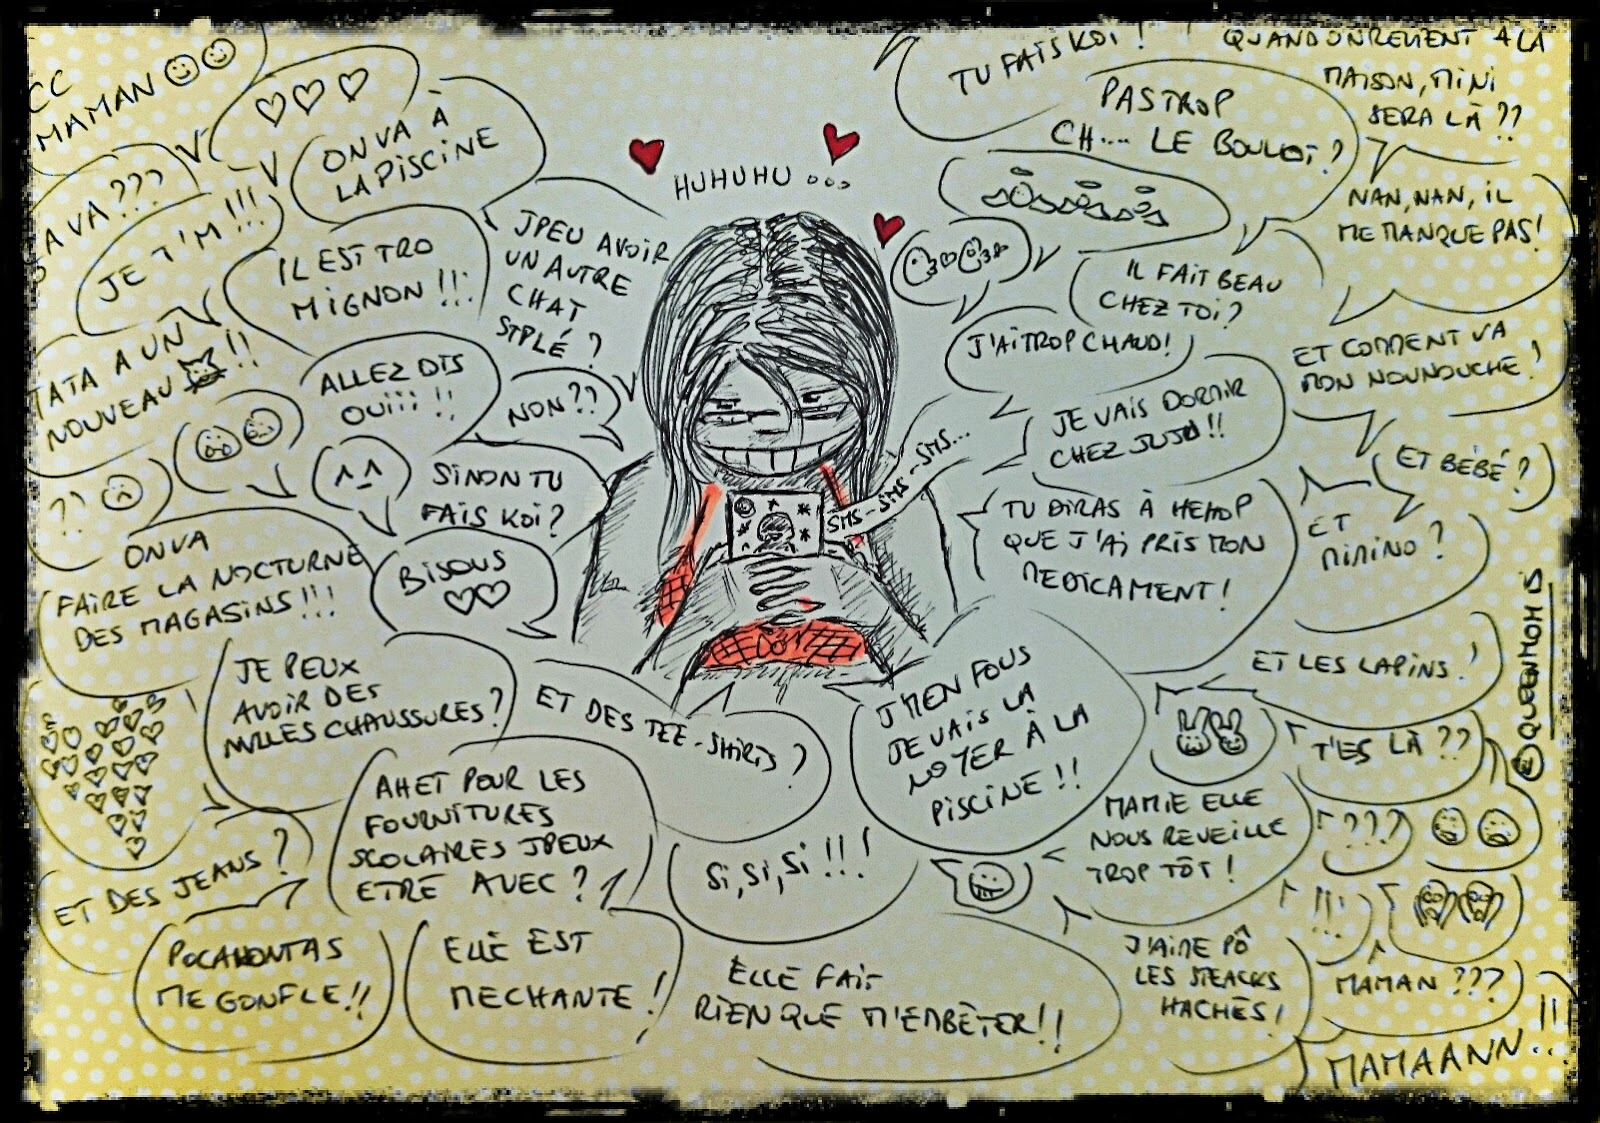 CC
MAMAN
ÇA VA???
JE T'M!!!
ON VA À
LA PISCINE
IL EST TRO
MIGNON!!!
TATA A UN
NOUVEAU !!
JPEU AVOIR
UN AUTRE
CHAT
STPLÉ ?
ALLEZ DIS
OUIII !!
NON??
??
^_^
SINON TU
FAIS KOI?
BISOUS
ON VA
FAIRE LA NOCTURNE
DES MAGASINS!!!
JE PEUX
AVOIR DES
NVLLES CHAUSSURES?
ET DES TEE-SHIRTS ?
ET DES JEANS ?
AH ET POUR LES
FOURNITURES
SCOLAIRES JPEUX
ETRE AVEC ?
POCAHONTAS
ME GONFLE!!
ELLE EST
MECHANTE !
ELLE FAIT
RIEN QUE M'EMBÊTER!!
SI, SI, SI !!!
J'MEN FOUS
JE VAIS LA
NOYER À LA
PISCINE !!
HUHUHU ...
SMS-SMS-SMS...
TU FAIS KOI !
PAS TROP
CH.... LE BOULOT?
QUAND ON REVIENT A LA
MAISON, MINI
SERA LÀ ??
NAN, NAN, IL
ME MANQUE PAS!
IL FAIT BEAU
CHEZ TOI?
J'AI TROP CHAUD!
ET COMMENT VA
MON NOUNOUCHE !
JE VAIS DORMIR
CHEZ JUJU!!
ET BÉBÉ ?
TU DIRAS À HEMOP
QUE J'AI PRIS MON
MEDICAMENT !
ET
MIMINO ?
ET LES LAPINS !
T'ES LÀ ??
???
MAMIE ELLE
NOUS REVEILLE
TROP TÔT !
!!!
J'AIME PÔ
LES STEACKS
HACHÉS !
MAMAN ???
MAMAANN!!!
© QUEENMOH